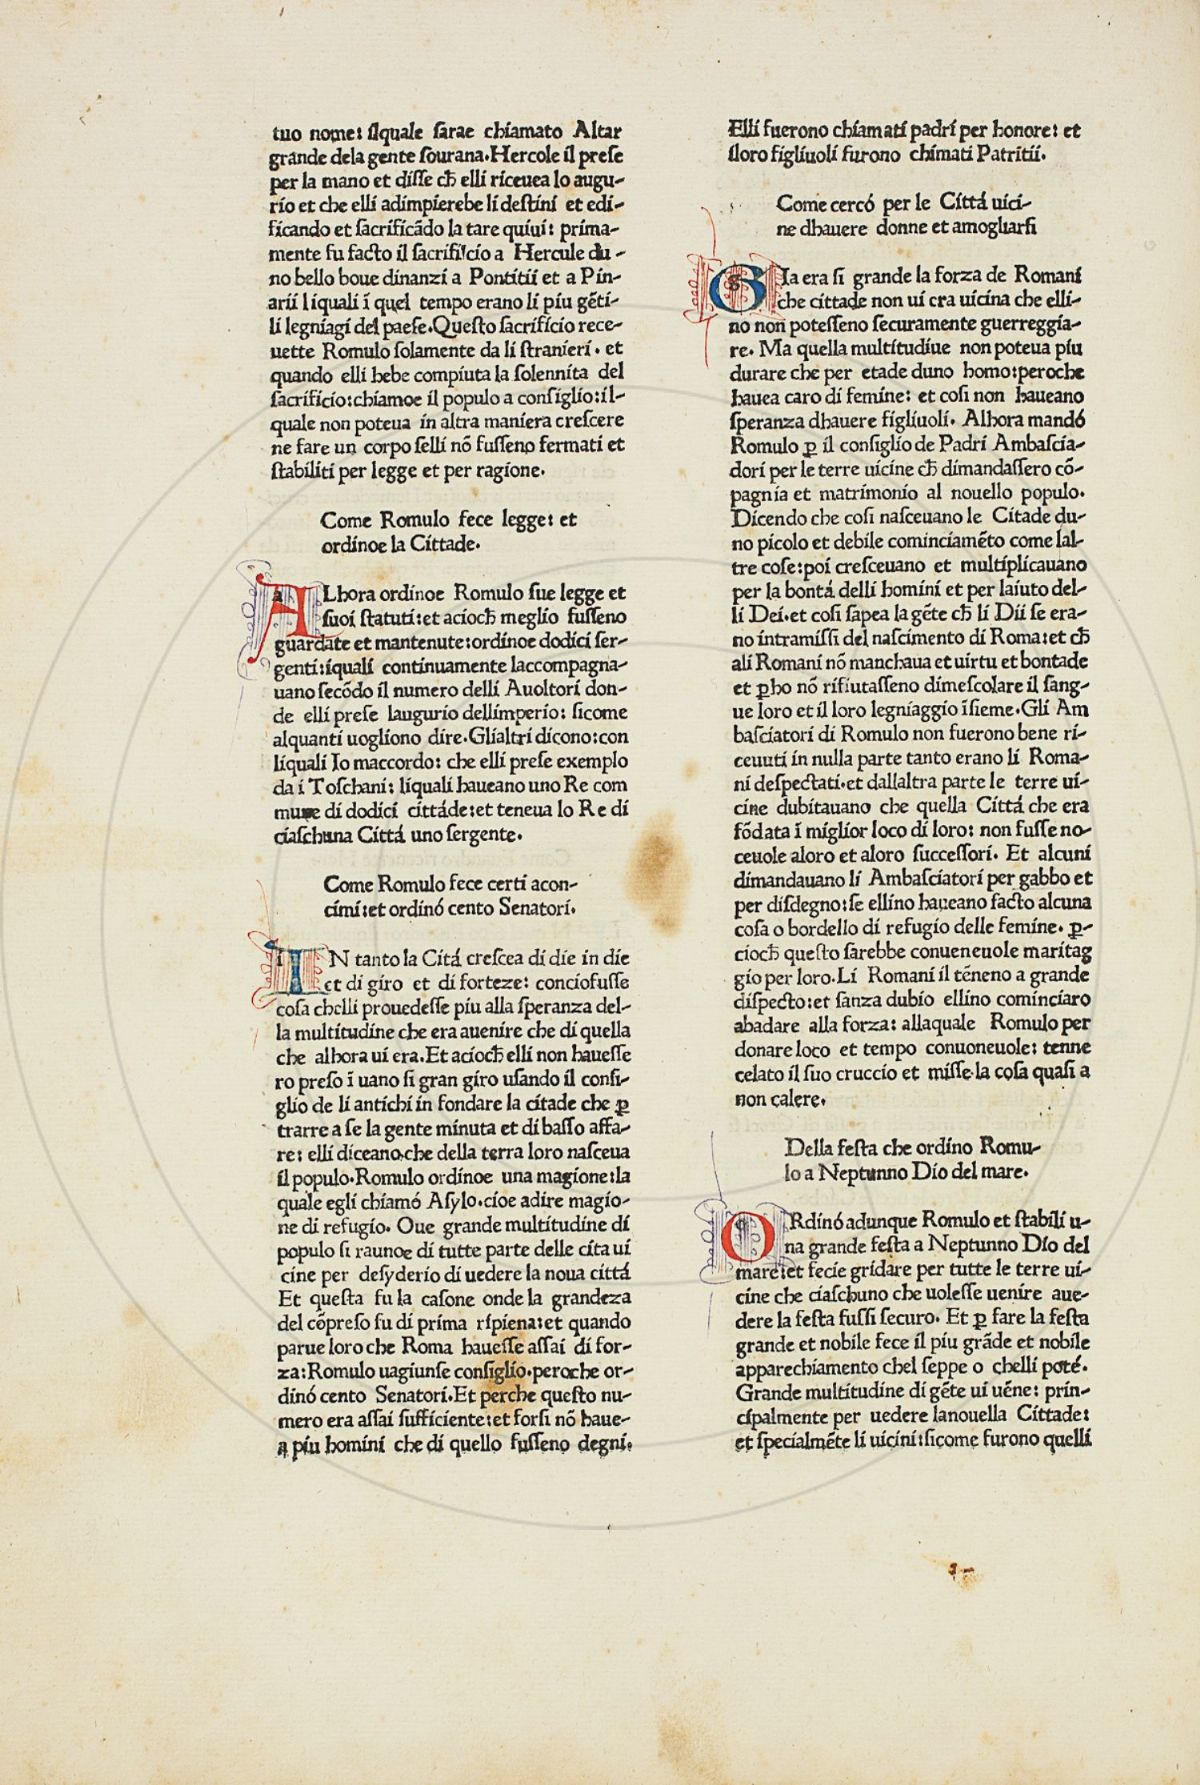 tuo nome: ilquale ſarae chiamato Altar
grande dela gente ſourana. Hercole il preſe
per la mano et diſſe cħ elli riceuea lo augu-
rio et che elli adimpierebe li deſtini et edi-
ficando et ſacrificãdo la tare quiui: prima-
mente fu facto il ſacrificio a Hercule du -
no bello boue dinanzi a Pontitii et a Pin-
arii liquali ĩ quel tempo erano li piu gẽti-
li legniagi del paeſe. Queſto ſacrificio rece-
uette Romulo ſolamente da li ſtranieri. et
quando elli hebe compiuta la ſolennita del
ſacrificio: chiamoe il populo a conſiglio: il-
quale non poteua in altra maniera creſcere
ne fare un corpo ſelli nõ fuſſeno fermati et
ſtabiliti per legge et per ragione.
Come Romulo fece legge: et
ordinoe la Cittade.
Alhora ordinoe Romulo ſue legge et
ſuoi ſtatuti: et aciocħ meglio fuſſeno
guardate et mantenute: ordinoe dodici ſer-
genti: iquali continuamente laccompagna-
uano ſecõdo il numero delli Auoltori don-
de elli preſe laugurio dellimperio: ſicome
alquanti uogliono dire. Glialtri dicono: con
liquali Io maccordo: che elli preſe exemplo
da i Toſchani: liquali haueano uno Re com
mune di dodici cittade: et teneua lo Re di
ciaſchuna Cittá uno ſergente.
Come Romulo fece certi acon-
cimi: et ordinó cento Senatori.
IN tanto la Citá creſcea di die in die
et di giro et di forteze: conciofuſſe
coſa chelli prouedeſſe piu alla ſperanza del-
la multitudine che era auenire che di quella
che alhora ui era. Et aciocħ elli non haueſſe
ro preſo ĩ uano ſi gran giro uſando il conſi-
glio de li antichi in fondare la citade che ꝑ
trarre a ſe la gente minuta et di baſſo affa-
re: elli diceano che della terra loro naſceua
il populo. Romulo ordinoe una magione: la
quale egli chiamó Aſylo. cioe adire magio-
ne di refugio. Oue grande multitudine di
populo ſi raunoe di tutte parte delle cita ui
cine per deſyderio di uedere la noua cittá
Et queſta fu la caſone onde la grandeza
del cõpreſo fu di prima ripiena: et quando
parue loro che Roma haueſſe aſſai di for-
za: Romulo uagiunſe conſiglio. peroche or-
dinó cento Senatori. Et perche queſto nu-
mero era aſſai ſufficiente: et forſi nõ haue-
a piu homini che di quello fuſſeno degni.
Elli fuerono chiamati padri per honore: et
iloro figliuoli furono chimati Patritii.
Come cercó per le Cittá uici-
ne dhauere donne et amogliarſi
GIa era ſi grande la forza de Romani
che cittade non ui era uicina che elli-
no non poteſſeno ſecuramente guerreggia-
re. Ma quella multitudiue non poteua piu
durare che per etade duno homo: peroche
hauea caro di femine: et coſi non haueano
ſperanza dhauere figliuoli. Alhora mandó
Romulo ꝑ il conſiglio de Padri Ambaſcia-
dori per le terre uicine cħ dimandaſſero cõ-
pagnia et matrimonio al nouello populo.
Dicendo che coſi naſceuano le Citade du-
no picolo et debile cominciamẽto come lal-
tre coſe: poi creſceuano et multiplicauano
per la bontá delli homini et per laiuto del-
li Dei. et coſi ſapea la gẽte cħ li Dii ſe era-
no intramiſſi del naſcimento di Roma: et cħ
ali Romani nõ manchaua et uirtu et bontade
et ꝑho nõ rifiutaſſeno dimeſcolare il ſang-
ue loro et il loro legniaggio ĩſieme. Gli Am
baſciatori di Romulo non fuerono bene ri-
ceuuti in nulla parte tanto erano li Roma-
ni deſpectati. et dallaltra parte le terre ui-
cine dubitauano che quella Cittá che era
fõdata ĩ miglior loco di loro: non fuſſe no-
ceuole aloro et aloro ſucceſſori. Et alcuni
dimandauano li Ambaſciatori per gabbo et
per diſdegno: ſe ellino haueano facto alcuna
coſa o bordello di refugio delle femine. ꝑ-
ciocħ queſto ſarebbe conueneuole maritag
gio per loro. Li Romani il tẽneno a grande
diſpecto: et ſanza dubio ellino cominciaro
abadare alla forza: allaquale Romulo per
donare loco et tempo conuoneuole: tenne
celato il ſuo cruccio et miſſe la coſa quaſi a
non calere.
Della feſta che ordino Romu-
lo a Neptunno Dio del mare.
ORdinó adunque Romulo et ſtabili u-
na grande feſta a Neptunno Dio del
mare: et fecie gridare per tutte le terre ui-
cine che ciaſchuno che uoleſſe uenire aue-
dere la feſta fuſſi ſecuro. Et ꝑ fare la feſta
grande et nobile fece il piu grãde et nobile
apparechiamento chel ſeppe o chelli poté.
Grande multitudine di gẽte ui uẽne: prin-
cipalmente per uedere lanouella Cittade:
et ſpecialmẽte li uicini: ſicome furono quelli